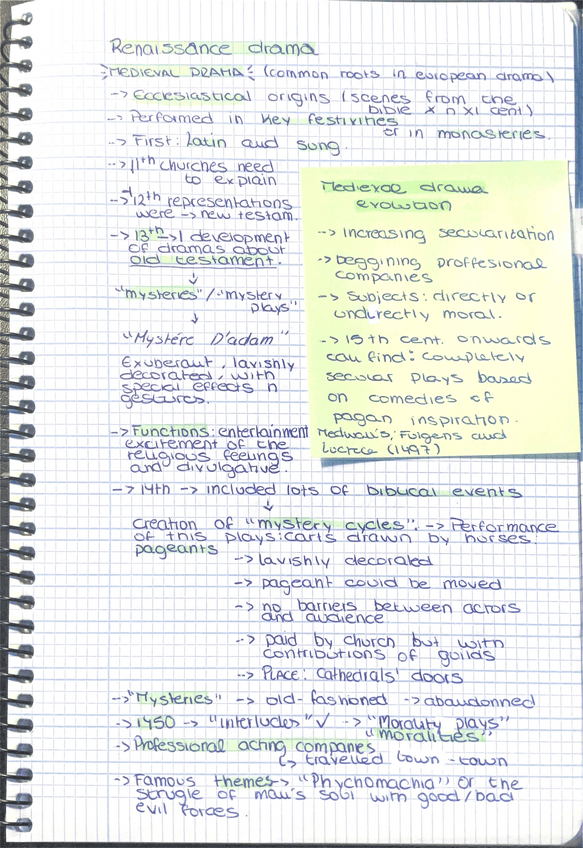 Renaissance drama
MEDIEVAL DRAMA: (common roots in european drama)
-> Ecclesiastical origins (scenes from the
bible x n XI cent)
-> Performed in key festivities
or in monasteries.
-> First: Latin and sung.
-> 11th churches need
to explain
-> 12th representations
were -> new testam.
-> 13th -> 1 development
of dramas about
old testament.
↓
"mysteries"/"mystery
plays"
↓
"Mystére D'adam"
Exuberant, lavishly
decorated, with
special effects n
gestures.
-> Functions: entertainment
excitement of the
religious feelings
and divulgative.
Medieval drama
evolution
-> Increasing secularitation
-> beggining proffesional
companies
-> Subjects: directly or
undirectly moral.
-> 15th cent. onwards
can find: completely
secular plays based
on comedies of
pagan inspiration.
Medwall's, Fulgens and
Lucrece (1497)
-> 14th -> included lots of biblical events
↓
creation of "mystery cycles". -> Performance
of this plays: carts drawn by horses.
pageants
-> lavishly decorated
-> pageant could be moved
-> no barriers between actors
and audience
-> paid by church but with
contributions of guilds
-> PLACE: Cathedrals' doors
-> "Mysteries" -> old-fashioned -> abandonned
-> 1450 -> "interludes" ✓ -> "Morality plays"
"moralities"
-> Professional acting companies
↳ travelled town-town
-> Famous themes -> "Phychomachia" or the
strugle of man's soul with good/bad
evil forces.